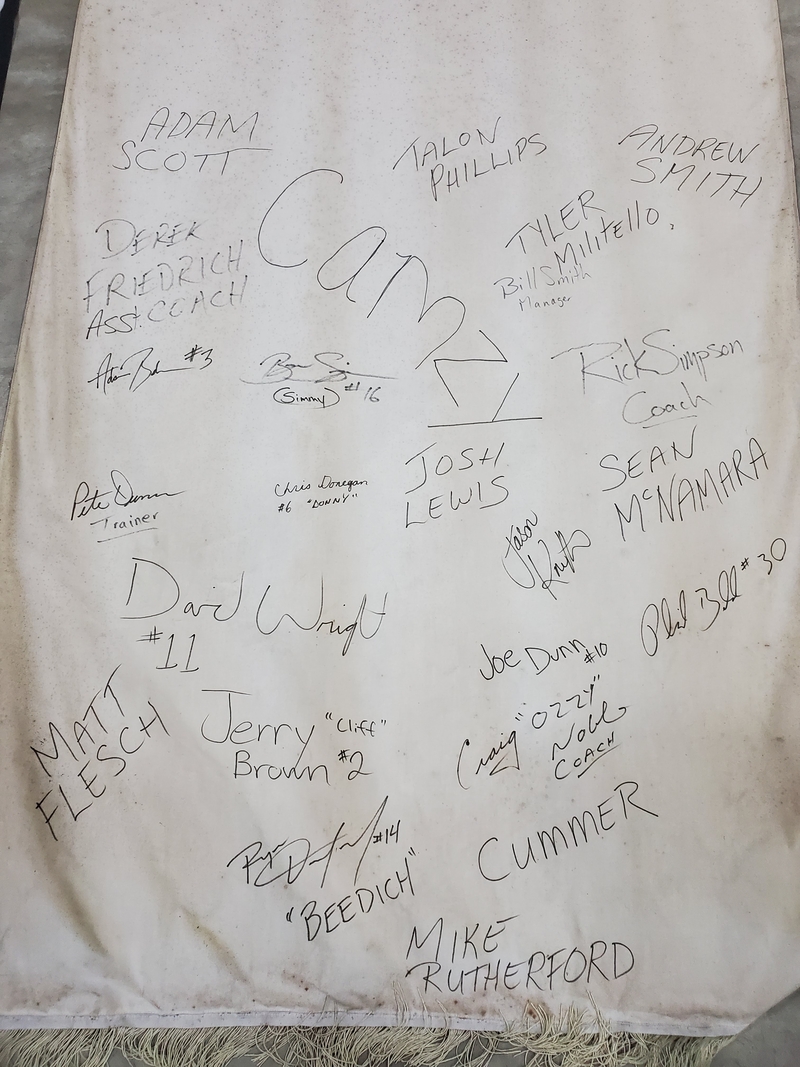 ADAM
SCOTT
TALON
PHILLIPS
ANDREW
SMITH
DEREK
FRIEDRICH
ASST. COACH
CAMM
TYLER
Militello,
Bill Smith
Manager
#3
(Simmy) #16
Rick Simpson
Coach
Pete Dunn
Trainer
Chris Donegan
#6 "DONNY"
JOSH
LEWIS
SEAN
McNAMARA
Jason
David Wright
#11
Joe Dunn #10
Phil #30
MATT
FLESCH
Jerry "Cliff"
Brown #2
Craig "OZZY"
Noble
COACH
Ryan #14
"BEEDICH"
CUMMER
MIKE
RUTHERFORD